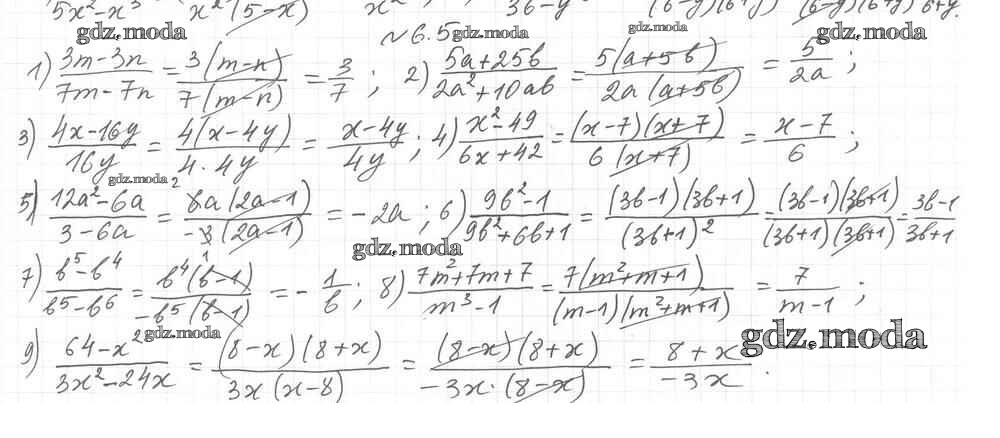 5x²-x³ x²(5-x) x² 3b-y (b-y)(b+y) (b-y)(b+y) b+y.
gdz.moda gdz.moda gdz.moda
№ 6.5
1) (3m-3n)/(7m-7n) = 3(m-n)/7(m-n) = 3/7 ; 2) (5a+25b)/(2a²+10ab) = 5(a+5b)/2a(a+5b) = 5/2a ;
3) (4x-16y)/16y = 4(x-4y)/4·4y = (x-4y)/4y ; 4) (x²-49)/(6x+42) = (x-7)(x+7)/6(x+7) = (x-7)/6 ;
gdz.moda
5) (12a²-6a)/(3-6a) = 6a(2a-1)/-3(2a-1) = -2a ; 6) (9b²-1)/(9b²+6b+1) = (3b-1)(3b+1)/(3b+1)² = (3b-1)(3b+1)/(3b+1)(3b+1) = (3b-1)/(3b+1)
gdz.moda
7) (b⁵-b⁴)/(b⁵-b⁶) = b⁴(b-1)/-b⁵(b-1) = -1/b ; 8) (7m²+7m+7)/(m³-1) = 7(m²+m+1)/(m-1)(m²+m+1) = 7/(m-1) ;
gdz.moda gdz.moda
9) (64-x²)/(3x²-24x) = (8-x)(8+x)/3x(x-8) = (8-x)(8+x)/-3x·(8-x) = (8+x)/-3x .